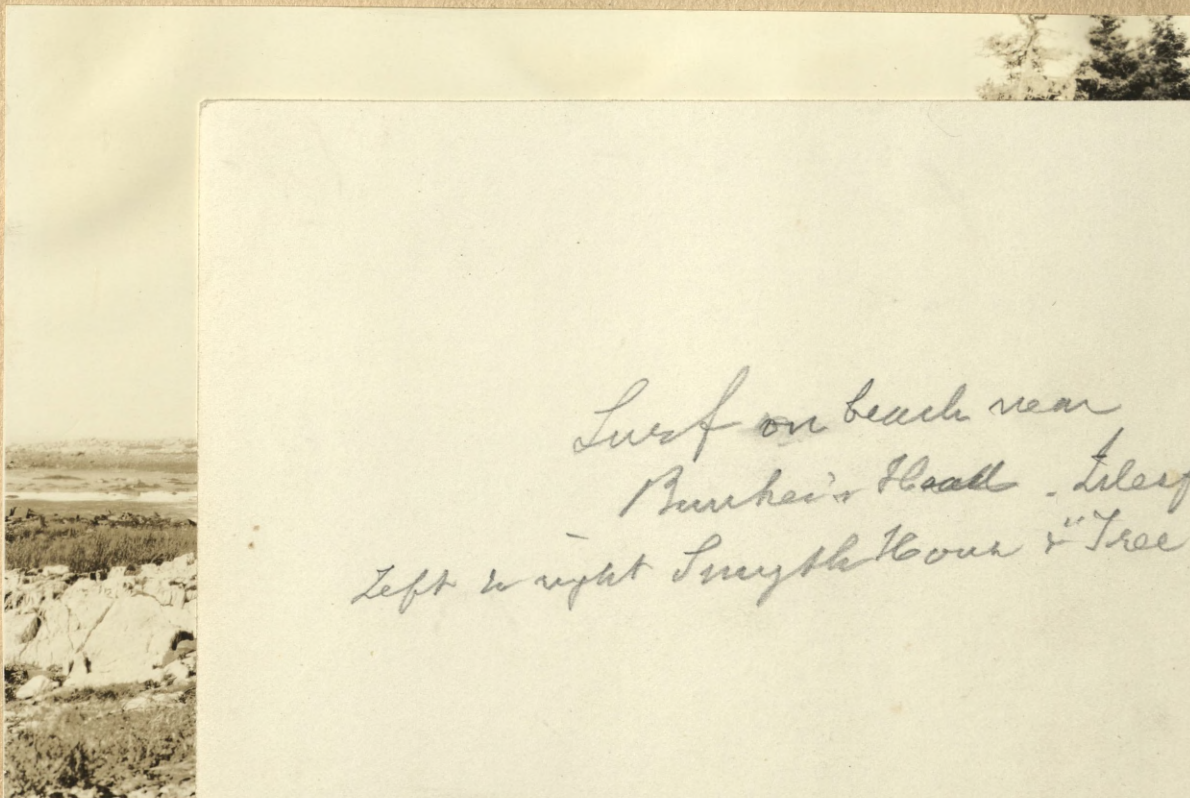 Surf on beach near
Bunker's Head - Islesf
Left to right Smyth House & "Tree